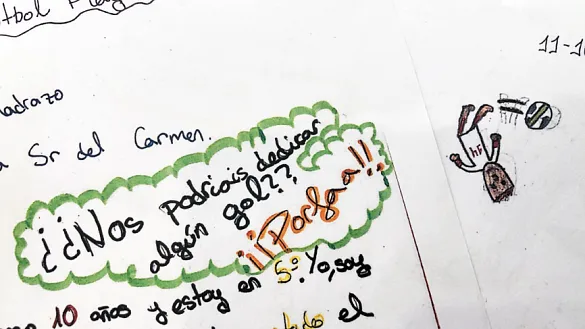 11-1
adrazo
a Sr del Carmen.
¿¿Nos podriais dedicar
algún gol??
¡¡Porfaa!!
10 años y estoy en 5º. Yo, soy
el